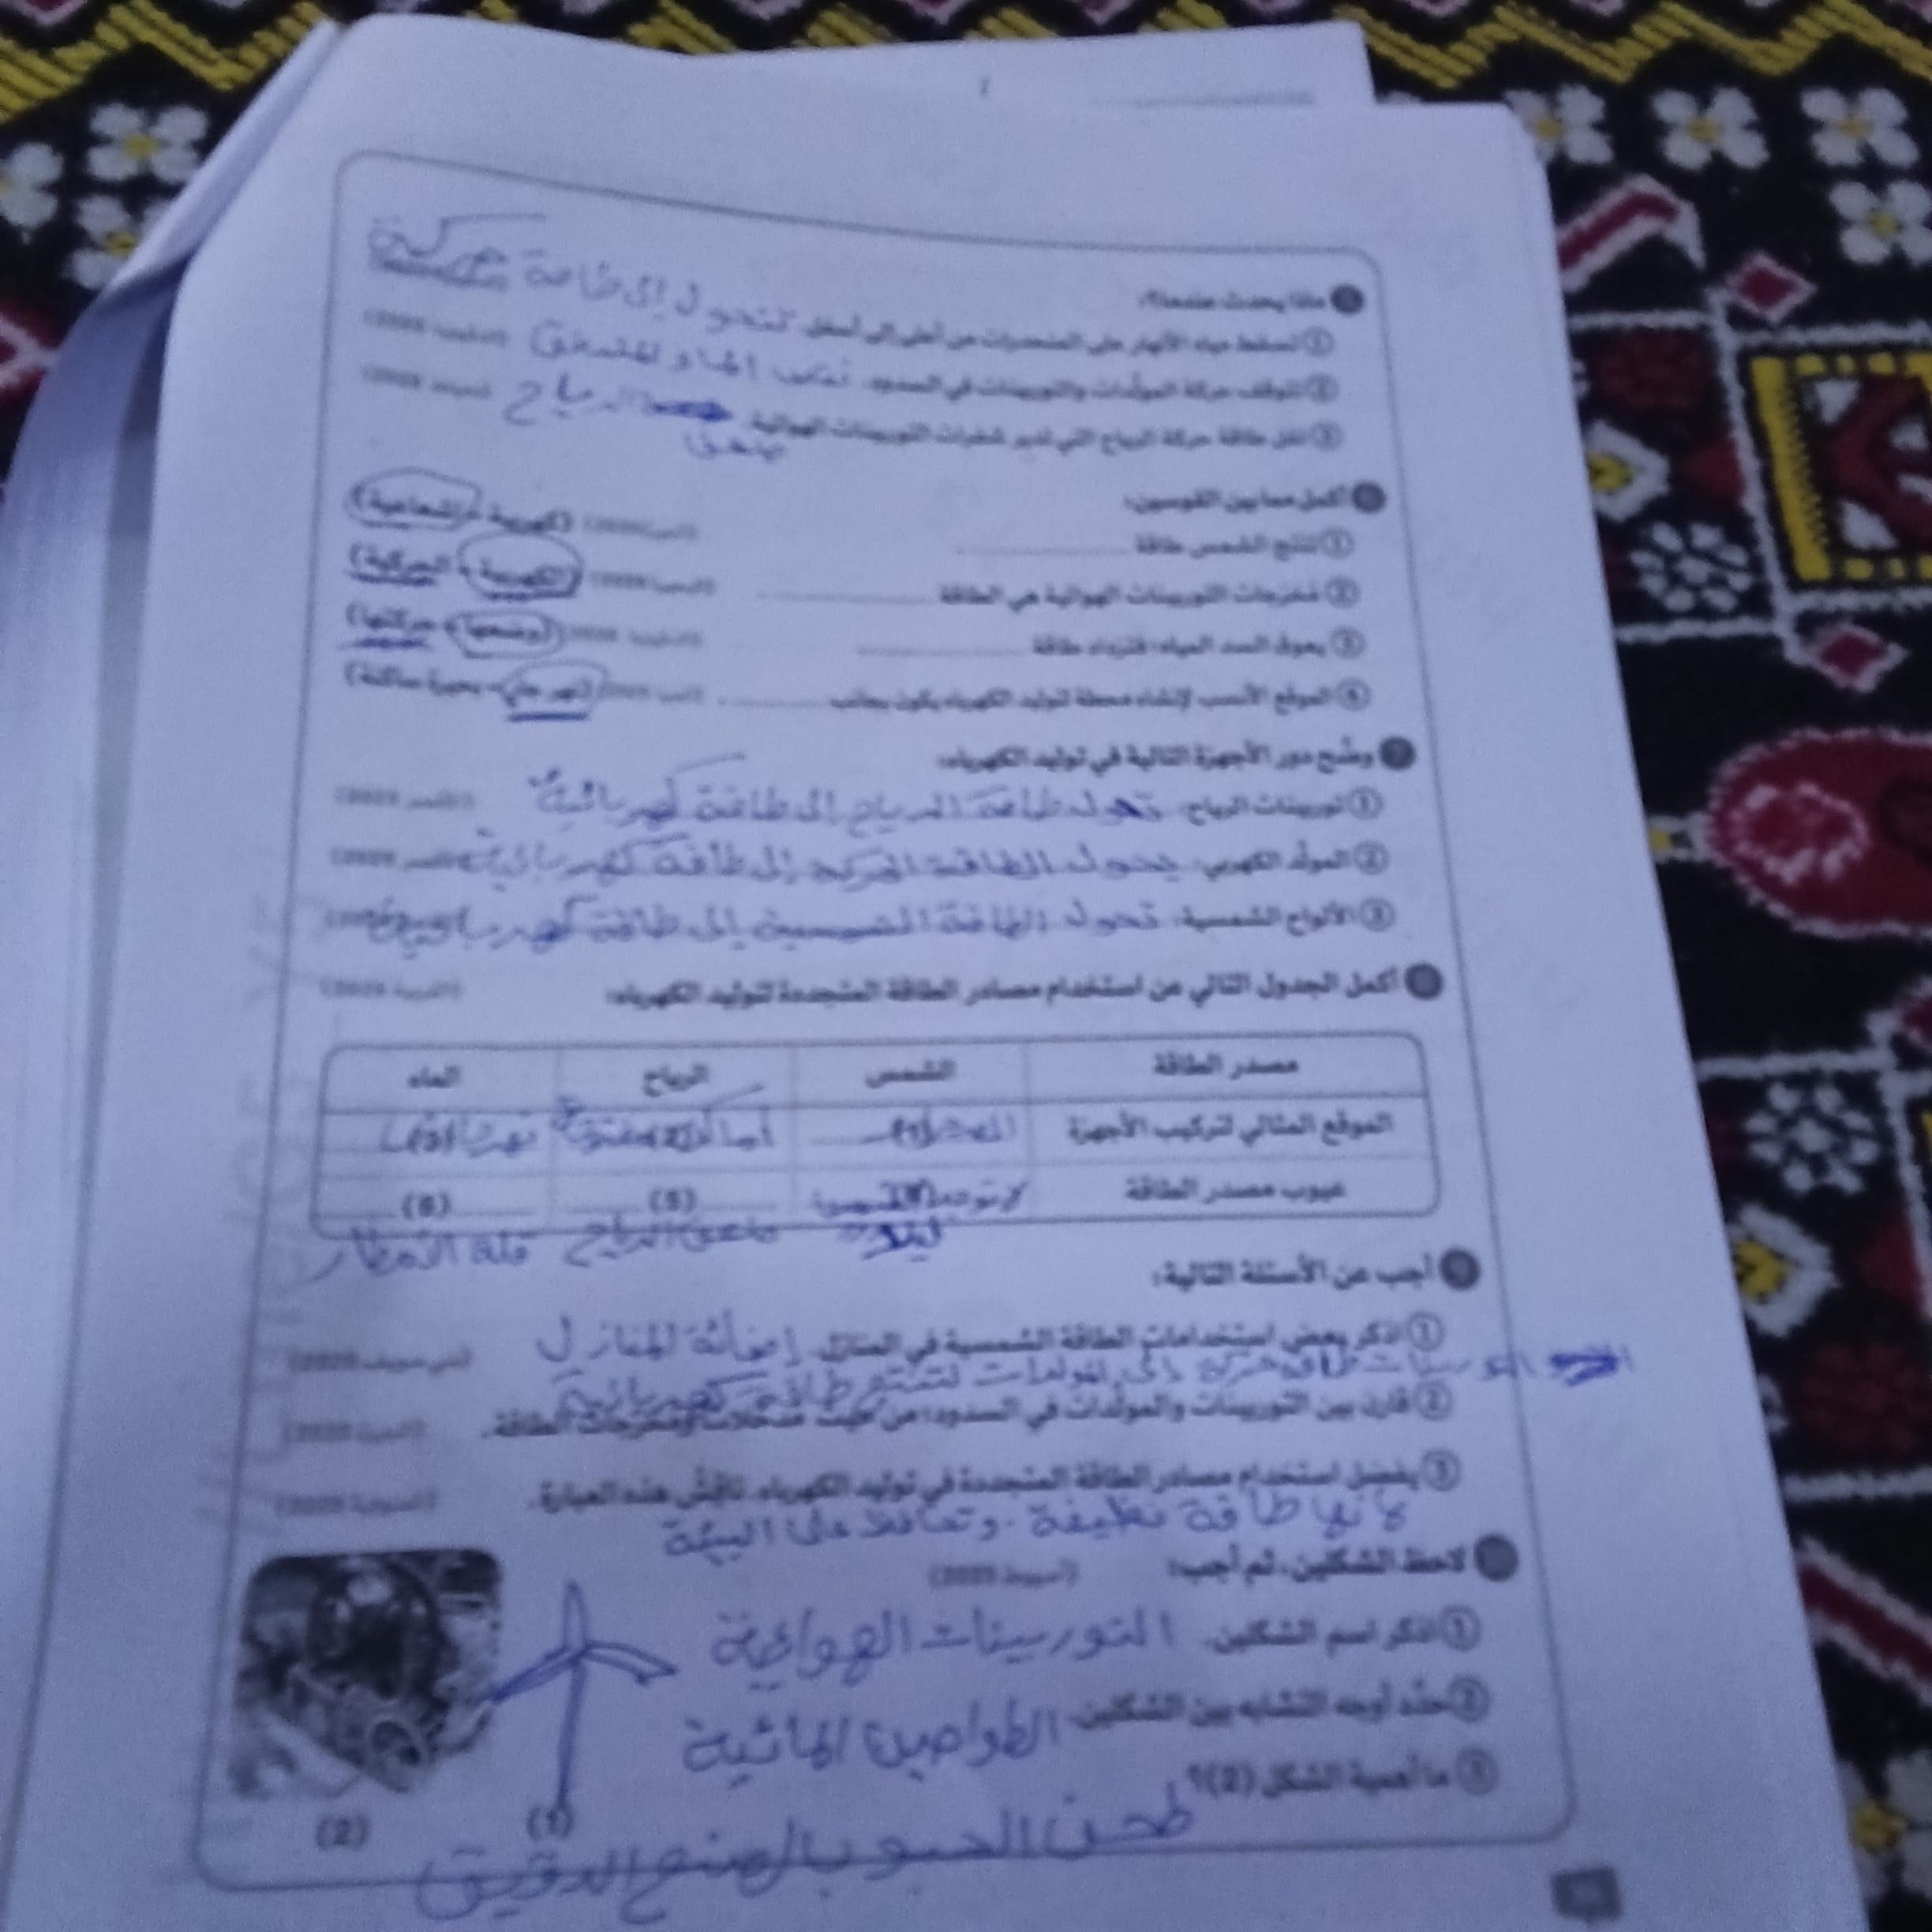 ماذا يحدث عندما؟:
① تسقط مياه الأنهار على المنحدرات من أعلى إلى أسفل. تتحول إلى طاقة حركية
② تتوقف حركة المولدات والتوربينات في السدود.
③ تقل طاقة حركة الرياح التي تدير شفرات التوربينات الهوائية. الرياح
أكمل مما بين القوسين:
① تنتج الشمس طاقة .......... (كهربية - إشعاعية)
② مخرجات التوربينات الهوائية هي الطاقة .......... (الكهربية - الحركية)
③ يعوق السد المياه؛ فتزداد طاقة .......... (وضعها - حركتها)
④ الموقع الأنسب لإنشاء محطة لتوليد الكهرباء يكون بجانب .......... (نهر جارٍ - بحيرة ساكنة)
وضّح دور الأجهزة التالية في توليد الكهرباء:
① توربينات الرياح: تحول طاقة الرياح إلى طاقة كهربائية
② المولد الكهربي: يحول الطاقة الحركية إلى طاقة كهربائية
③ الألواح الشمسية: تحول الطاقة الشمسية إلى طاقة كهربائية
أكمل الجدول التالي عن استخدام مصادر الطاقة المتجددة لتوليد الكهرباء:
مصدر الطاقة الشمس الرياح الماء
الموقع المثالي لتركيب الأجهزة (1) (2) (3)
عيوب مصدر الطاقة (5) (6)
الرياح قلة الأمطار
أجب عن الأسئلة التالية:
① اذكر بعض استخدامات الطاقة الشمسية في المنازل. إضائة المنازل
طاقة حركة إلى المولدات لتنتج طاقة كهربائية
② قارن بين التوربينات والمولدات في السدود؛ من حيث مدخلات ومخرجات الطاقة.
③ يفضل استخدام مصادر الطاقة المتجددة في توليد الكهرباء. ناقش هذه العبارة.
لأنها طاقة نظيفة وتحافظ على البيئة
لاحظ الشكلين، ثم أجب: (أسيوط 2025)
① اذكر اسم الشكلين. التوربينات الهوائية
② حدّد أوجه التشابه بين الشكلين. الطواحين المائية
③ ما أهمية الشكل (2)؟
طحن الحبوب لصنع الدقيق
(1) (2)